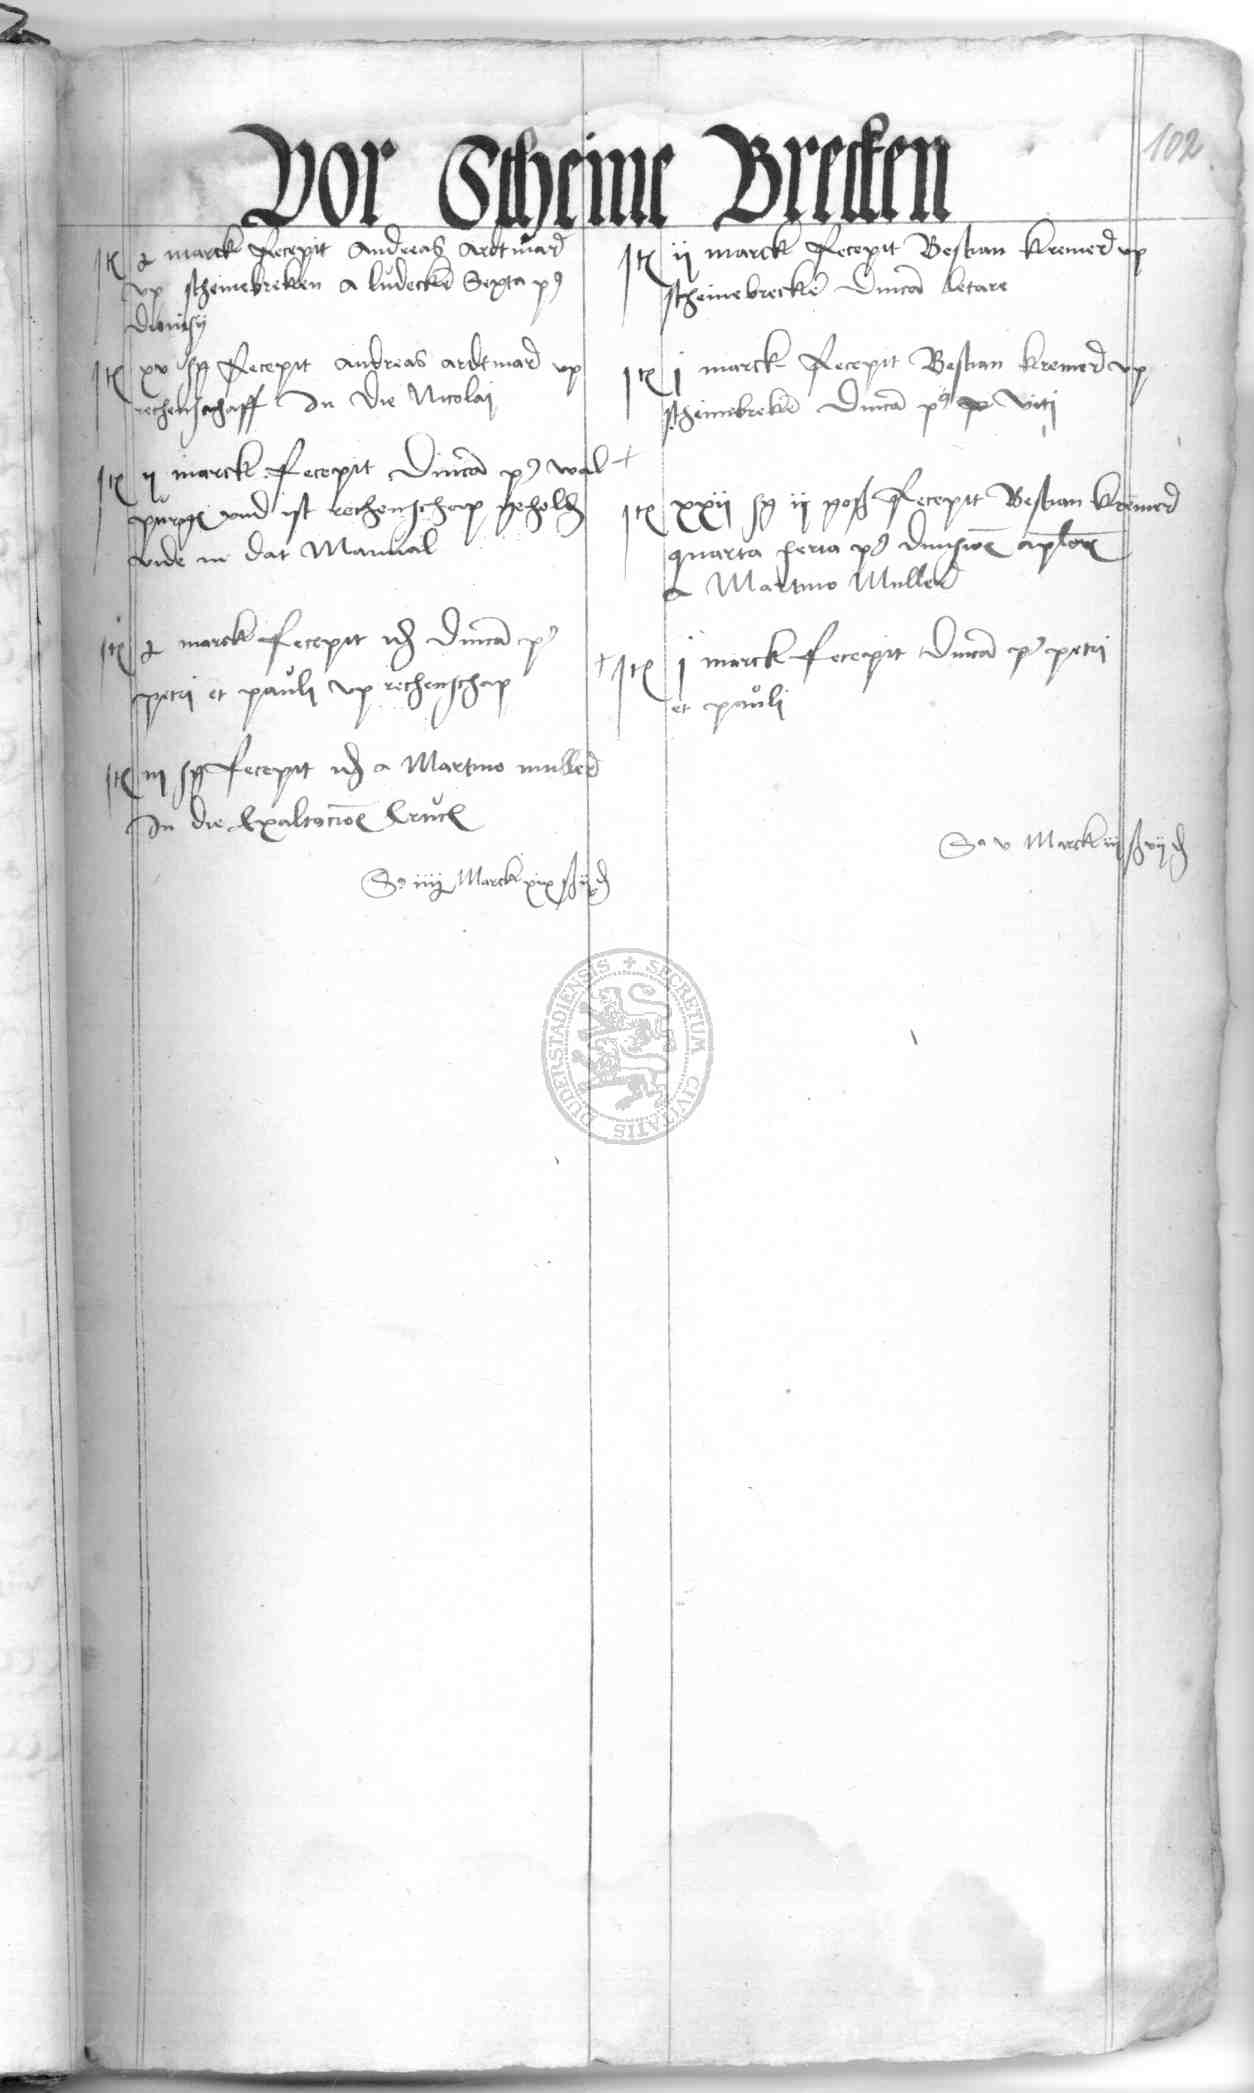 102
Vor Scheine Brecken
Itē marck Recepit Andreas ardtmard
vp scheinebreken a ludecke Sexta p9
dionisy
Itē xv ß Recepit Andreas ardtmard vp
rechenschaff In die Nicolai
Itē ij marck Recepit Dnicā p9 wal
vnd ist rechenschap geholdē
vide in dat Manual
Itē marck Recepit idē Dnicā p9
petri et pauli vp rechenschap
Itē iij ß Recepit idē a Martino muller
In die Exaltacōē Crucē
Sa iiij Marck xix ß ij d
Itē ij marck Recepit Bestian kremer vp
scheinebrecke Dnicā letare
Itē j marck Recepit Bestian kremer vp
scheinebreke Dnicā p9 Viti
Itē xxij ß ij Recepit Bestian kremer
quarta feria p9 diuisiōē aplorē
a Martino Muller
Itē j marck Recepit Dnicā p9 petri
et pauli
Sa v Marck iij ß vij d
SECRETUM CIVITATIS DUDERSTADIENSIS